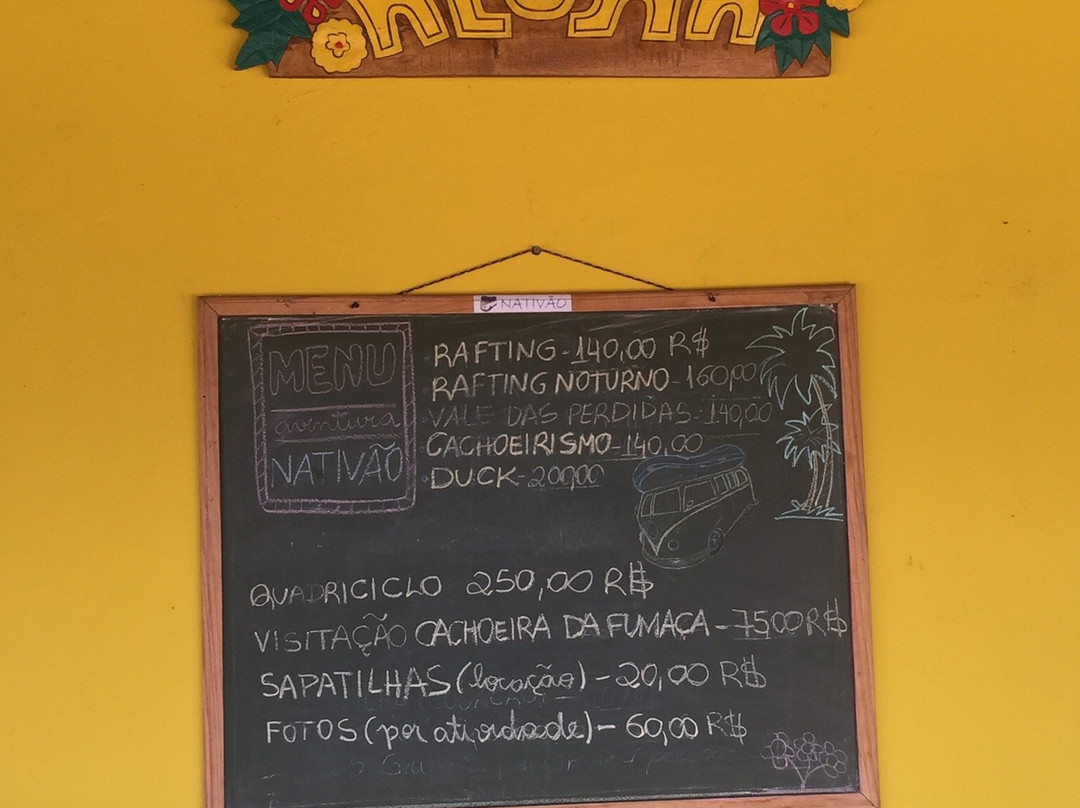 ALOHA
NATIVÃO
MENU
aventura
NATIVÃO
RAFTING - 140,00 R$
RAFTING NOTURNO - 160,00
VALE DAS PERDIDAS - 140,00
CACHOEIRISMO - 140,00
DUCK - 200,00
QUADRICICLO 250,00 R$
VISITAÇÃO CACHOEIRA DA FUMAÇA - 7500 R$
SAPATILHAS (locação) - 20,00 R$
FOTOS (por atividade) - 60,00 R$